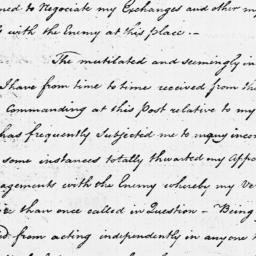 to Negociate my Exchanges and other
with the Enemy at this place. —
The mutilated and seemingly in
I have from time to time received from the
Commanding at this Post relative to my
has frequently Subjected me to many incon
some instances totally thwarted my Appo
agements with the Enemy whereby my Ve
than once called in Question — Being
from acting independently in anyone